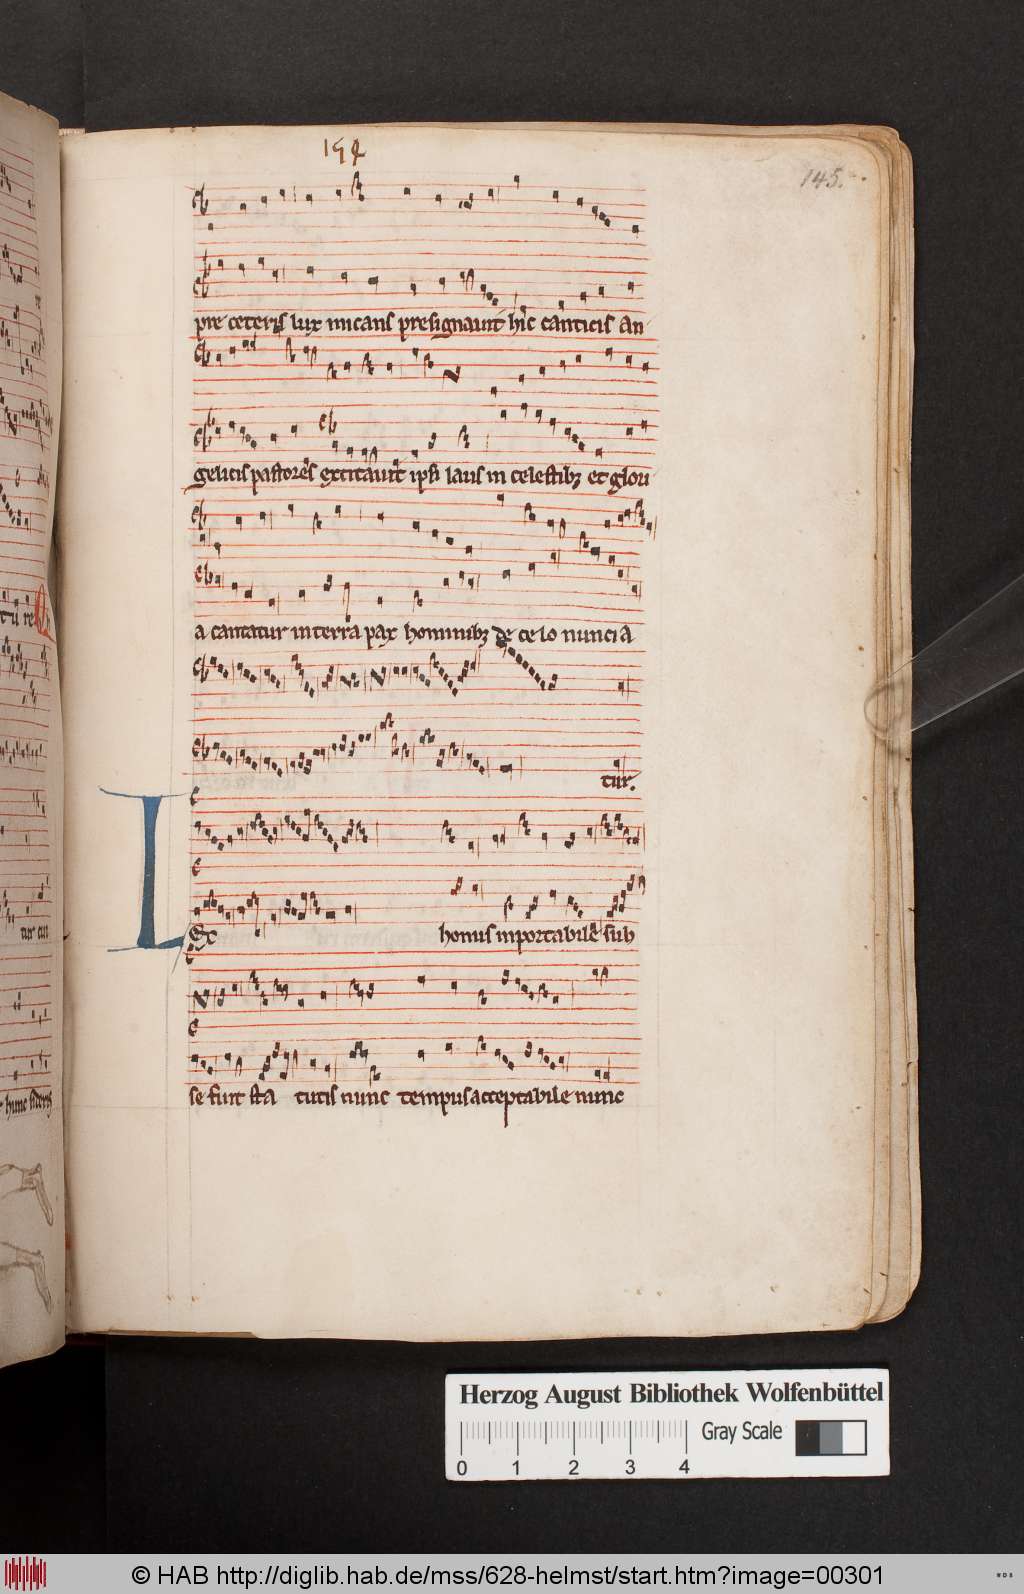 154
145.
pre ceteris lux micans presignauit hic canticis an
gelicis pastores excitauit ipsi laus in celestibꝫ et glori
a cantatur in terra pax hominibꝫ de celo nuncia
tur.
Lex honus inportabile sub
se fuit sta tutis nunc tempus acceptabile nunc
Herzog August Bibliothek Wolfenbüttel
Gray Scale
0 1 2 3 4
© HAB http://diglib.hab.de/mss/628-helmst/start.htm?image=00301